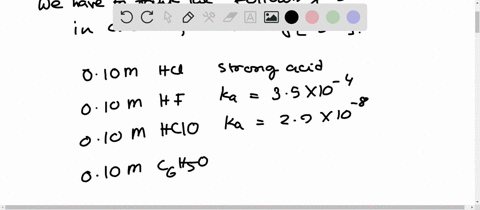 We have to
in
0.10 m HCl strong acid
0.10 m HF Ka = 3.5 × 10⁻⁴
0.10 m HClO Ka = 2.9 × 10⁻⁸
0.10 m C₆H5O